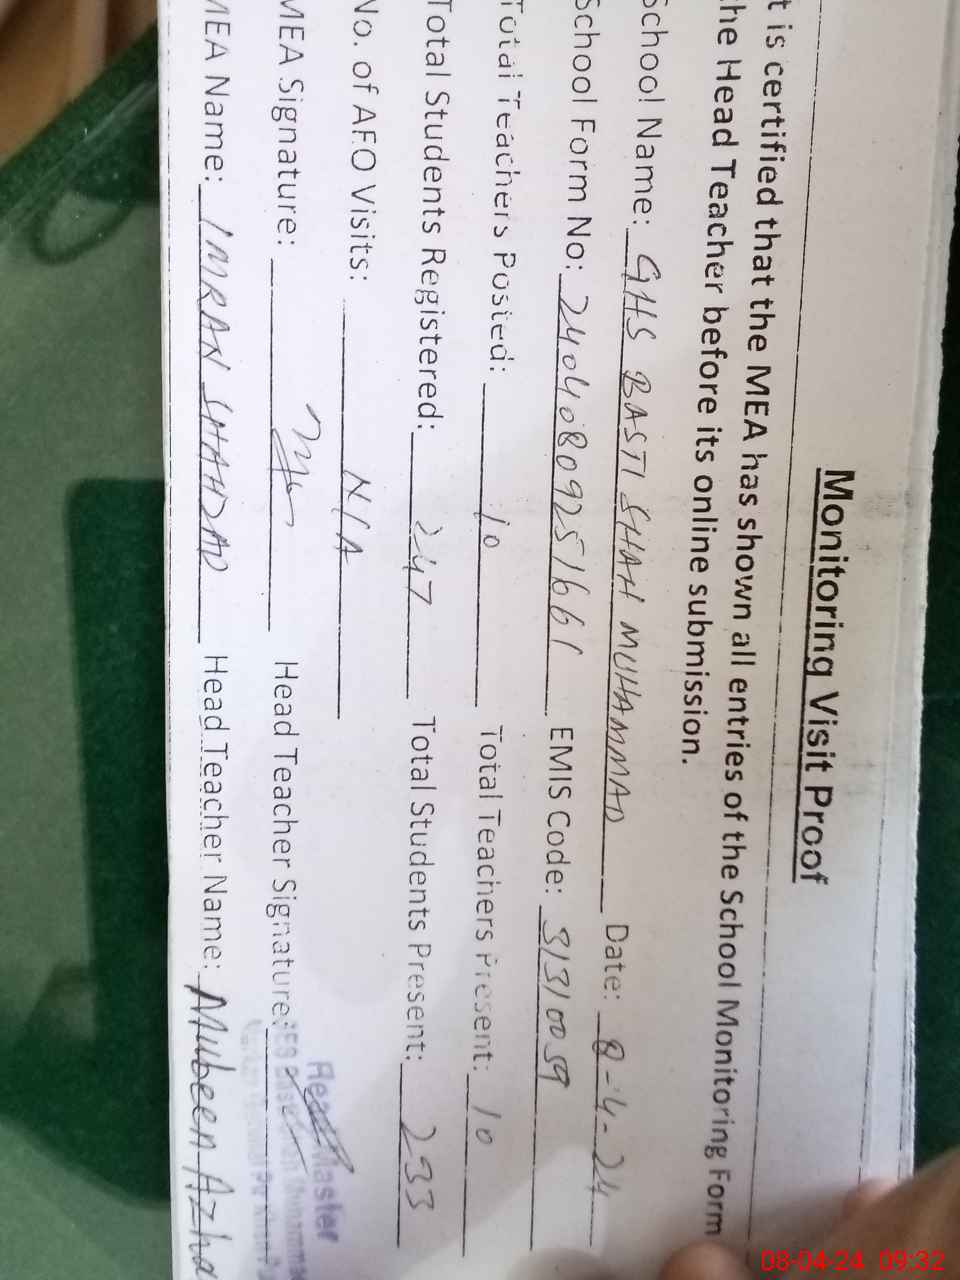 Monitoring Visit Proof
t is certified that the MEA has shown all entries of the School Monitoring Form
he Head Teacher before its online submission.
School Name: GHS BASTI SHAH MUHAMMAD Date: 8-4-24
School Form No: 24040809251661 EMIS Code: 31310059
Total Teachers Posted: 10 Total Teachers Present: 10
Total Students Registered: 247 Total Students Present: 233
No. of AEO Visits: N/A
MEA Signature: Head Teacher Signature:
MEA Name: IMRAN SHAHZAD Head Teacher Name: Mubeen Azha
Head Master
08-04-24 09:32